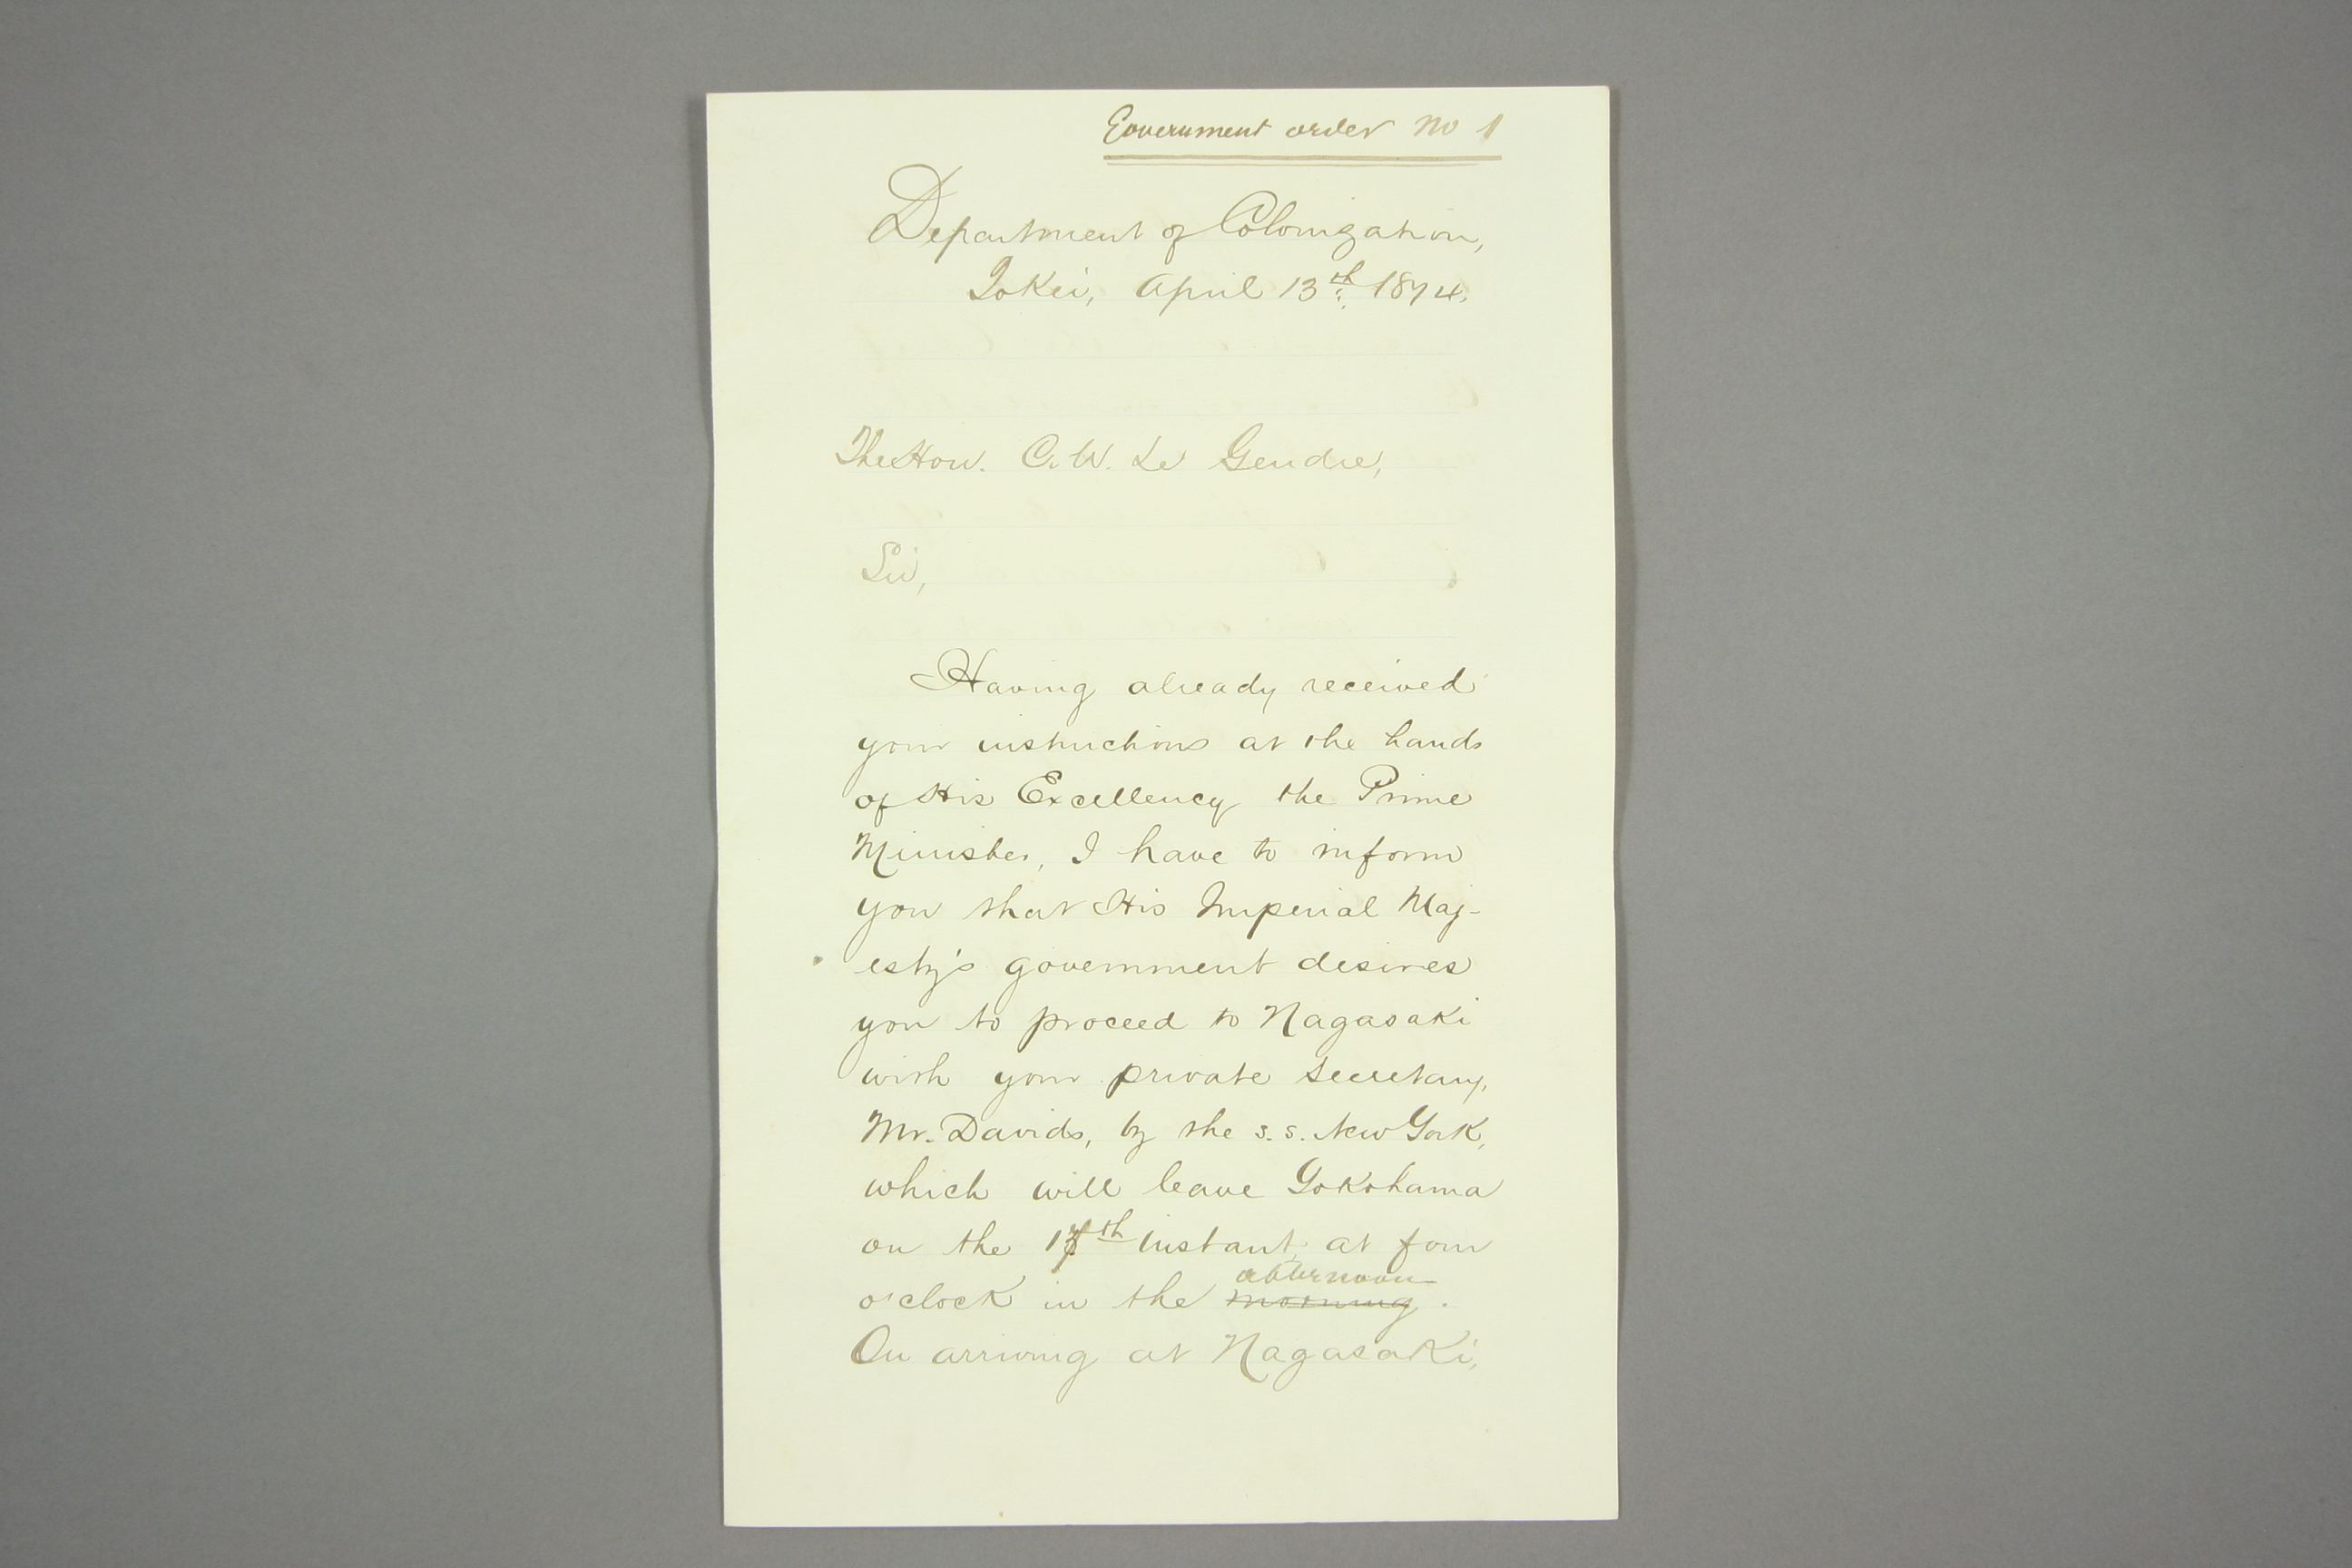 Government order No 1
Department of Colonization,
Tokei, April 13th 1874.
The Hon. C. W. Le Gendre,
Sir,
Having already received
your instructions at the hands
of His Excellency the Prime
Minister, I have to inform
you that His Imperial Maj-
esty's government desires
you to proceed to Nagasaki
with your private secretary,
Mr. Davids, by the s.s. New York,
which will leave Yokohama
on the 17th instant, at four
afternoon
o'clock in the morning.
On arriving at Nagasaki,